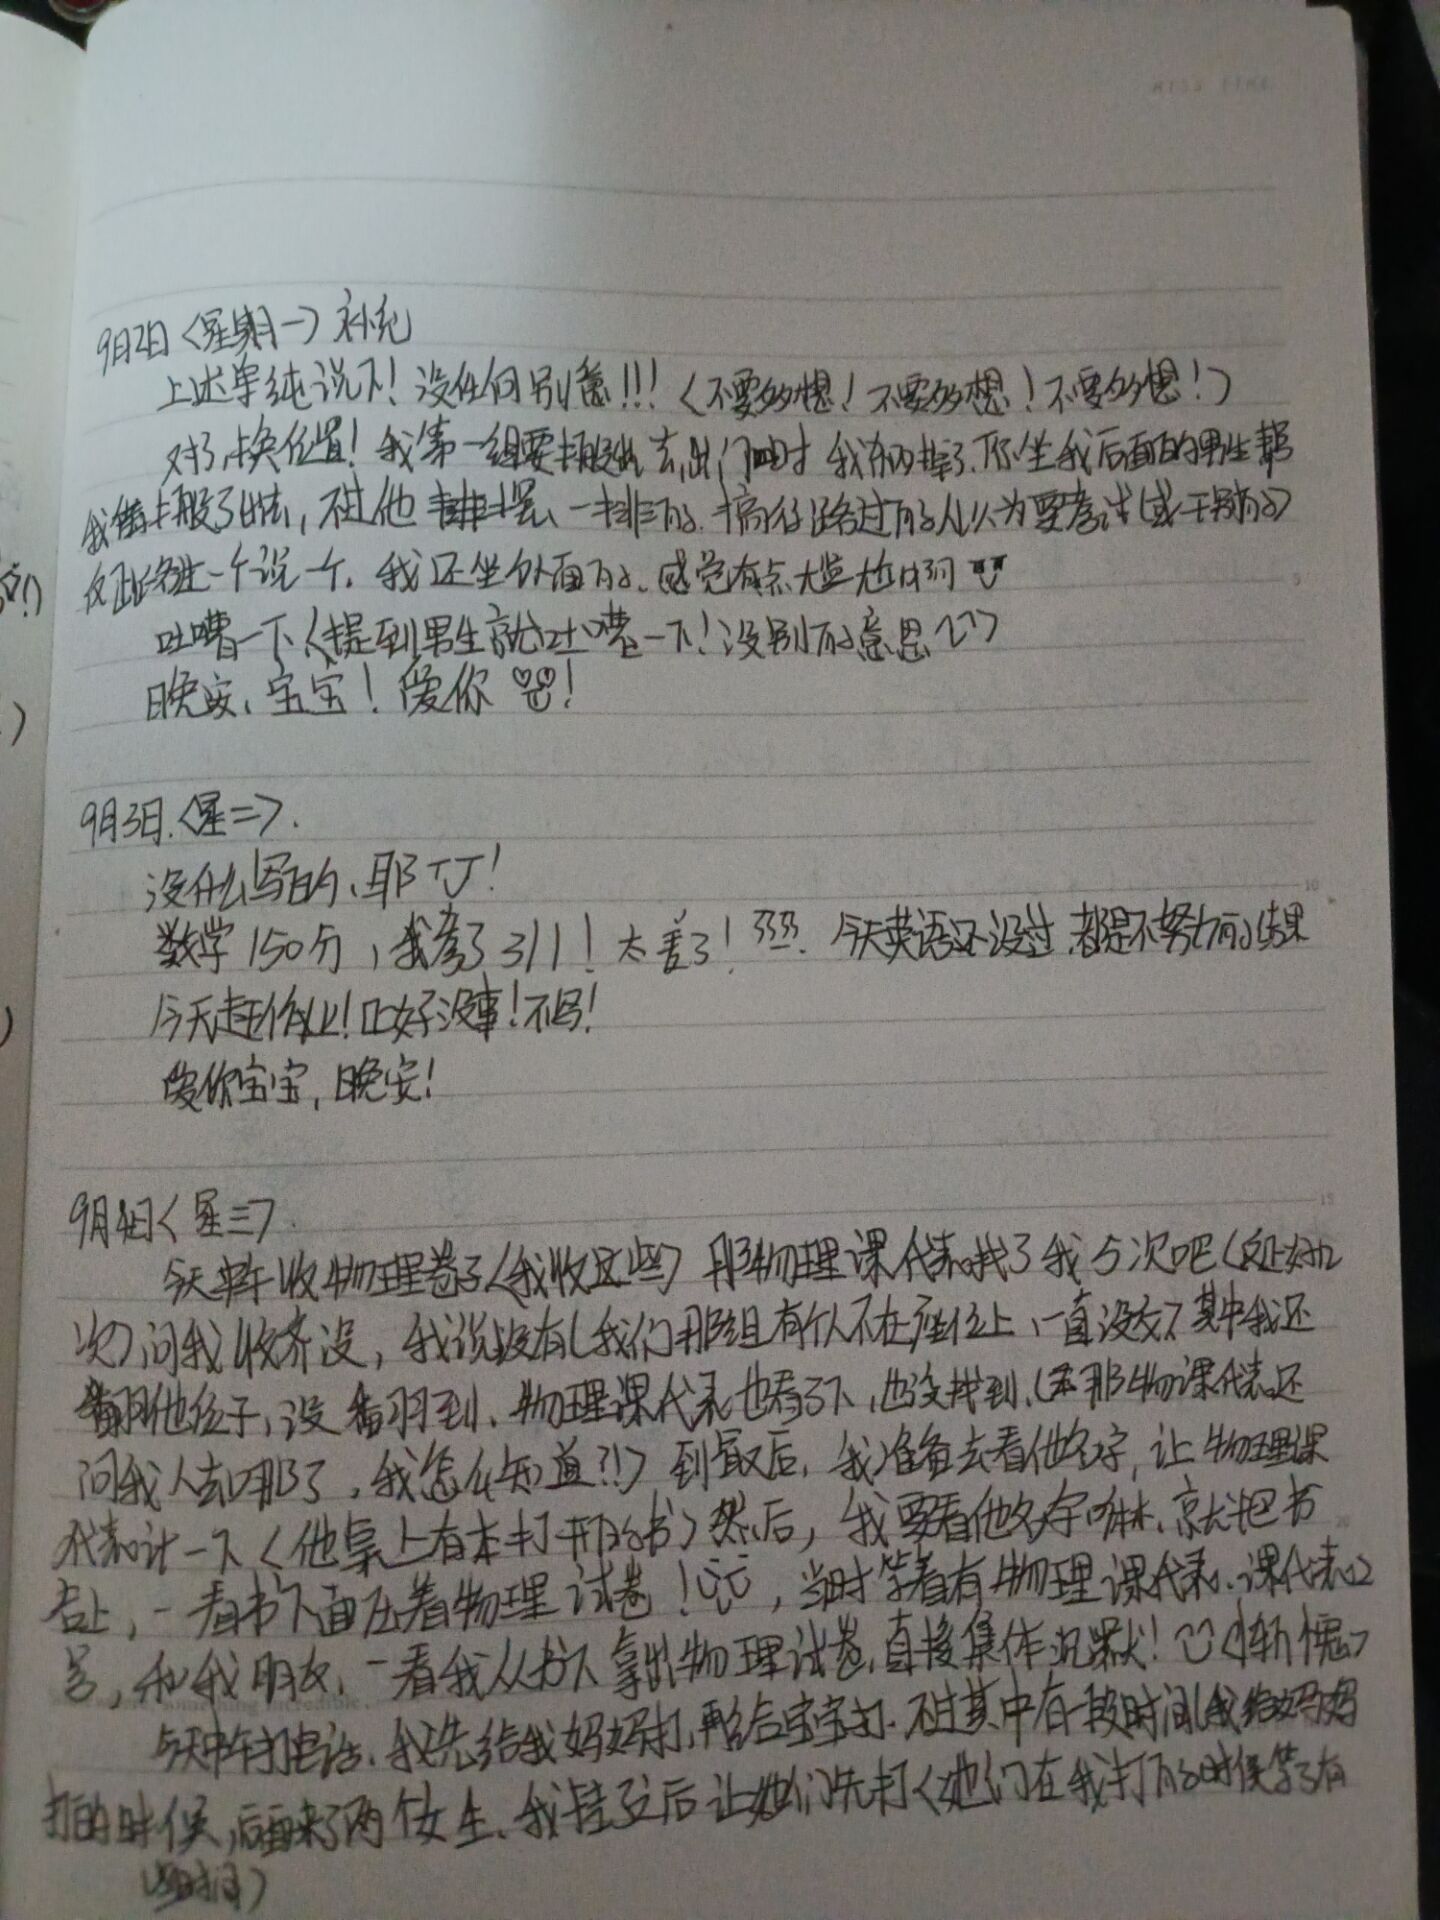 9月2日〈星期一〉补充
上述单纯说下！没任何别意!!!〈不要多想！不要多想！不要多想！〉
对了,换位置！我第一组要搬出去,出门口时 我东西掉了.坐我后面的男生帮
我搬了出去,不过他摆、一排的.搞得路过的人以为要考试(或干嘛的)
路过一个说一个.我还坐外面的.感觉有点尴尬
吐嘈一下〈提到男生就吐嘈一下！没别的意思〉
晚安、宝宝！爱你！
9月3日.〈星二〉.
没什么写的、耶！
数学150分,我考了311！太差了！今天英语还没过.都是不努力的结果
今天赶作业！还好没事！不写！
爱你宝宝,晚安！
9月4日〈星三〉.
今天中午收物理卷子〈我收这些〉那物理课代表找了我5次吧(反正好几
次)问我收齐没,我说没有(我们那组有个人不在座位上、一直没交)其中我还
翻他位子,没翻到、物理课代表也看了下,也没找到、(那物理课代表还
问我人去哪了,我怎么知道?!)到最后,我准备去看他名字,让物理课
代表记一下〈他桌上有本打开的书〉然后,我要看他名字嘛、就把书
合上,一看书下面压着物理试卷！,当时等着有物理课代表、课代表
,和我朋友、一看我从书下拿出物理试卷,直接集体沉默！〈惭愧〉
今天中午打电话、我先给我妈妈打,再给宝宝打.不过其中有一段时间(我给妈妈
打的时候,后面来了两个女生、我挂了之后让她们先打〈她们在我打的时候等了有
一段时间〉